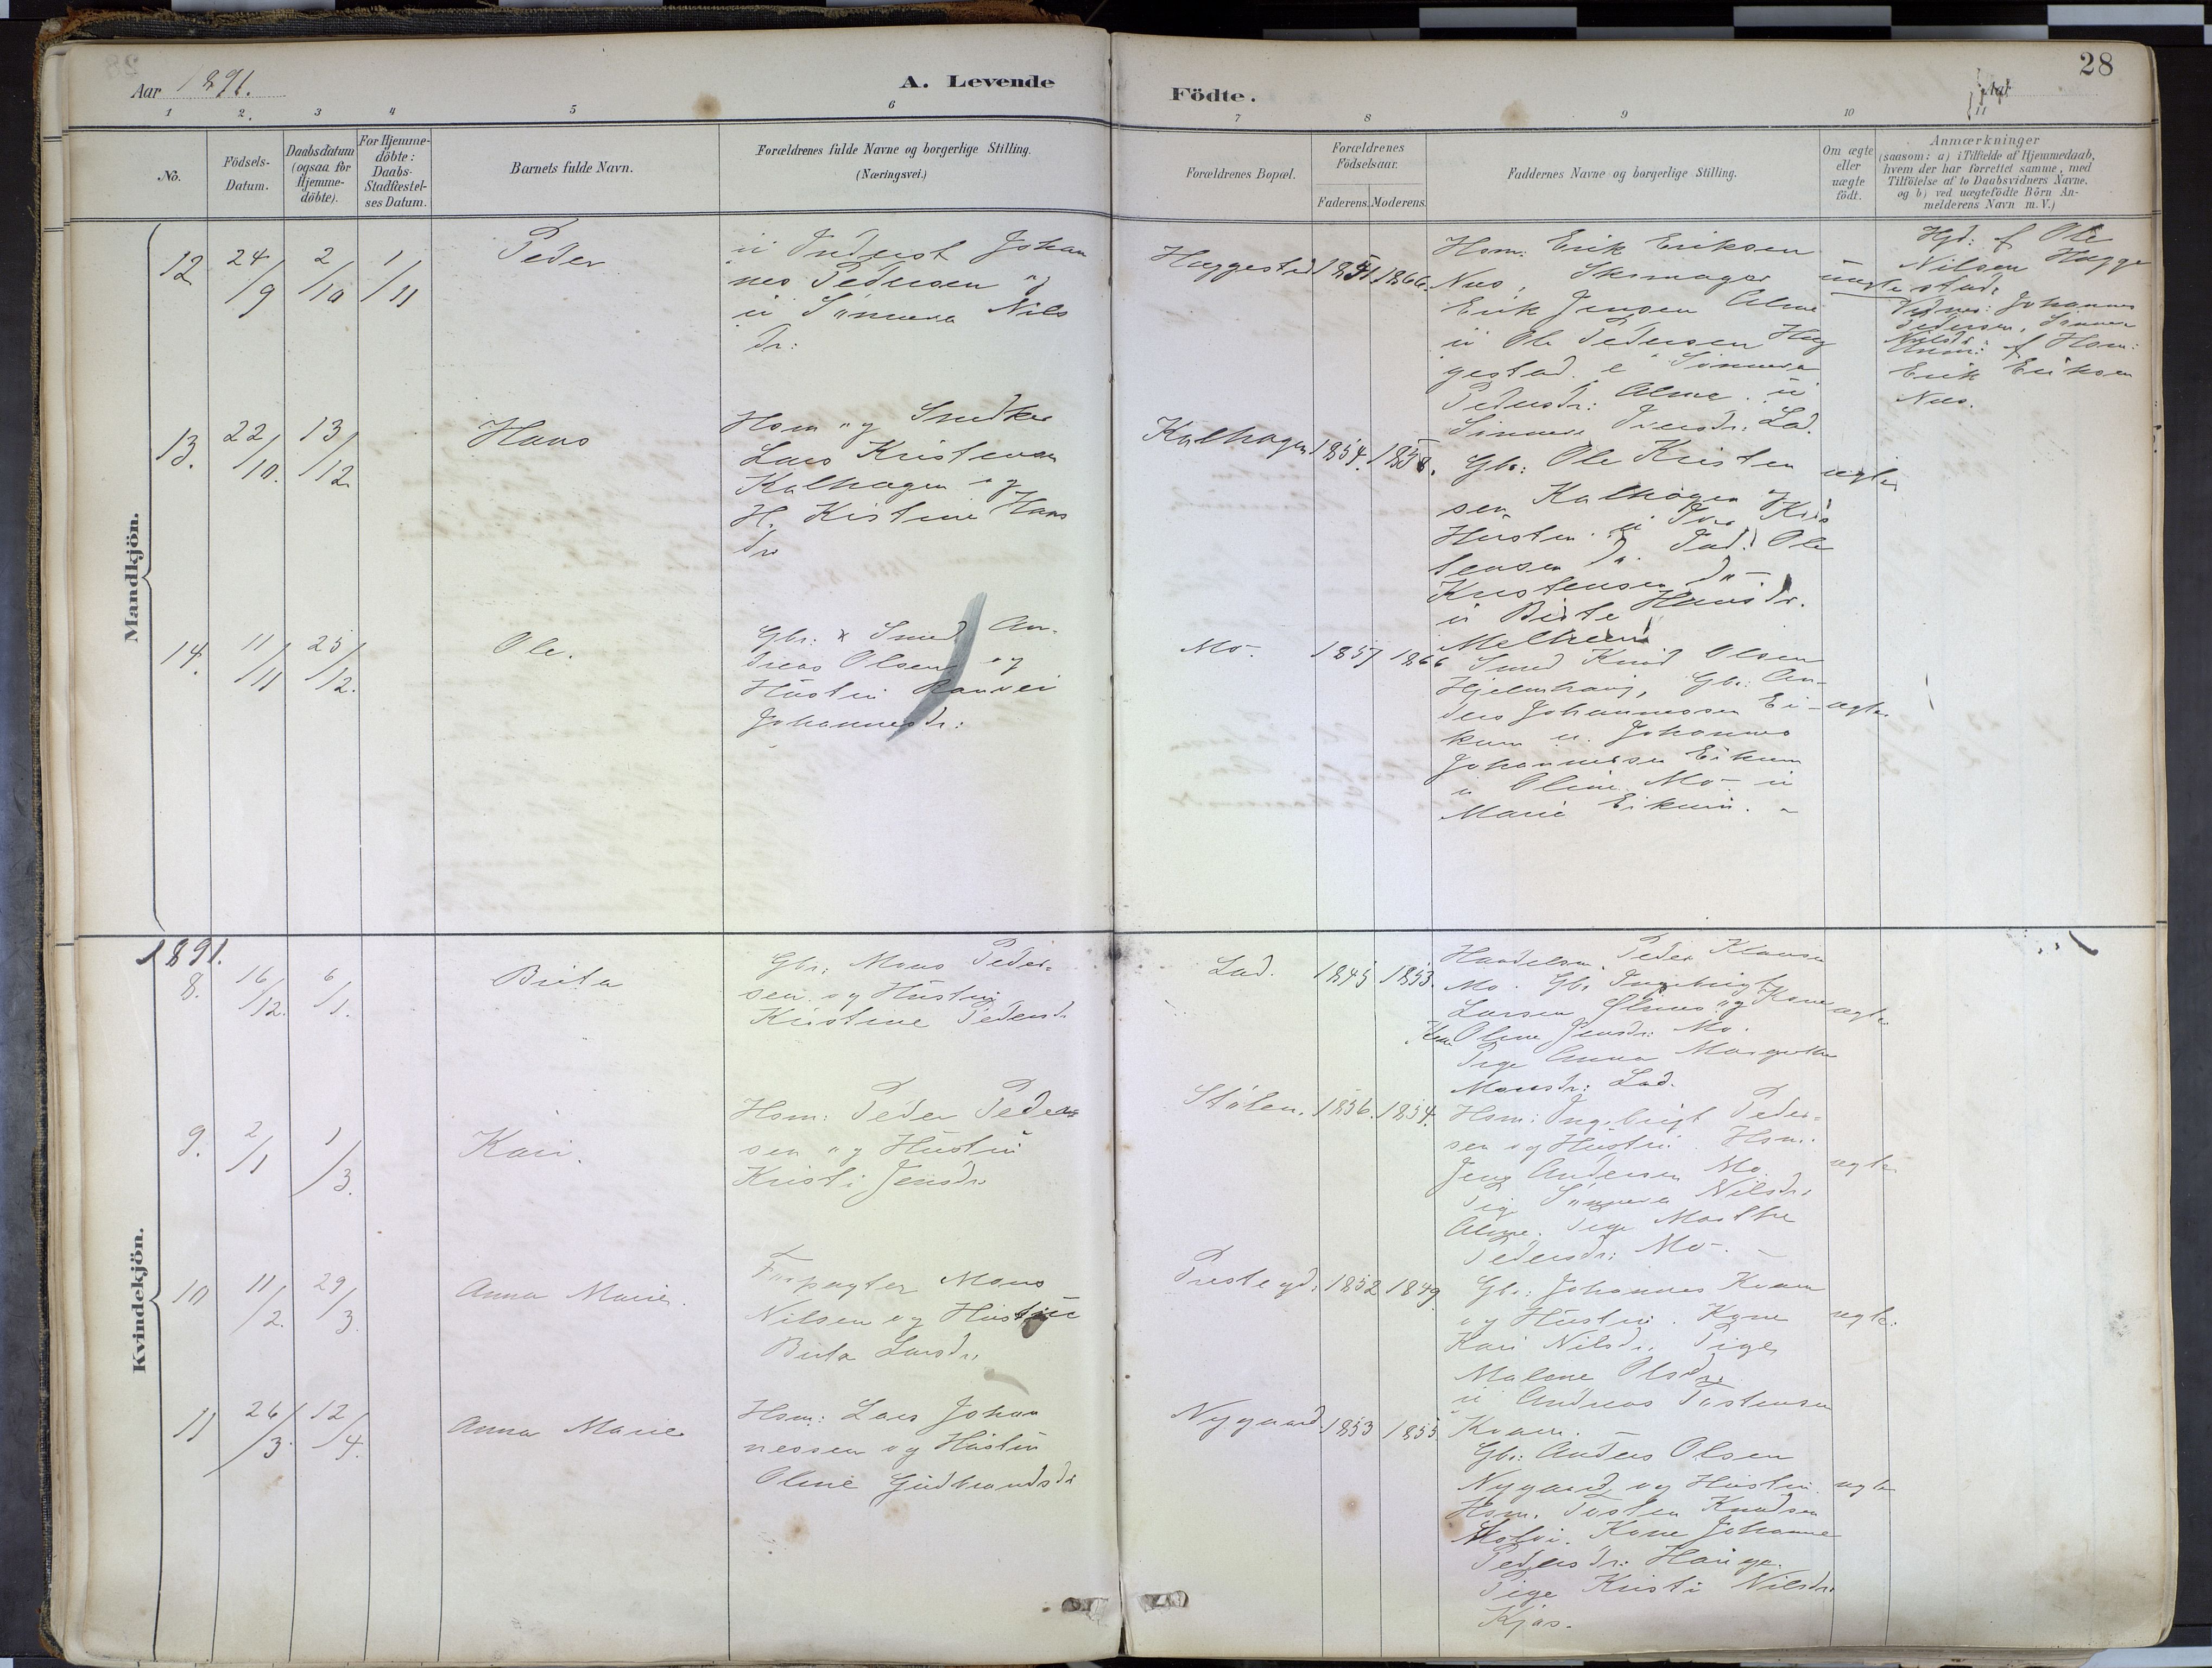 28
Aar 1891.
A. Levende
Födte.
Aar
1 2. 3 4 5 6 7 8 9 10 11
No.
Födsels-
Datum.
Daabsdatum
(ogsaa for
Hjemme-
döbte).
For Hjemme-
döbte:
Daabs-
Stadfæstel-
ses Datum.
Barnets fulde Navn.
Forældrenes fulde Navne og borgerlige Stilling.
(Næringsvei.)
Forældrenes Bopæl.
Forældrenes
Födselsaar.
Faderens. Moderens.
Faddernes Navne og borgerlige Stilling.
Om ægte
eller
uægte
födt.
Anmærkninger
(saasom: a) i Tilfælde af Hjemmedaab,
hvem der har forrettet samme, med
Tilföielse af to Daabsvidners Navne.
og b) ved uægtefödte Börn An-
melderens Navn m. V.)
Mandkjön.
12 24/9 2/10 1/11
Peder
u Inderst Johan
nes Pedersen og
u Sünneva Nils
dr:
Haggestad 1851 1866.
Hsm: Erik Eriksen
Nus, Skomager
Erik Jensen Alme
u Ole Pedersen Hag
gestad. e Sünneva
Pedersdr: Alme. u
Sinneve Iversdr: Lad.
uægte
Hjd: f Ole
Nilsen Hagge
stad:
Vidner: Johannes
Pedersen, Sünneva
Nilsdr:
Anm: f Hsm:
Erik Eriksen
Nus.
13. 22/10. 13/12.
Hans
Hsm og Snedker
Lars Kristensen
Kalhagen og
H. Kistine Hans
dr
Kalhagen 1854. 1858.
Gbr: Ole Kristen
sen Kalhagen
Hustru. u Iver Kris
tensen do. Fad: Ole
Kristensen do -
u Birte Hansdr.
Melheim
ægte
14. 11/11 25/12.
Ole.
Gbr: & Smed An-
dreas Olsen og
Hustru Ranvei
Johannesdr:
Mo. 1857 1866
Smed Knud Olsen
Hjelmhaug, Gbr: An-
ders Johannessen Ei-
kum u. Johannes
Johannessen Eikum
u Oline Mo u
Marie Eikum. -
ægte
Kvindekjön.
1891.
8. 16/12. 6/1.
Brita
Gbr: Mons Peder-
sen og Hustru
Kristine Pedersdr
Lad. 1845 1853.
Handelsm. Peder Klausen
Mo. Gbr Ingebrigt
Larsen Olmes og Kone
Kone Oline Jensdr: Mo.
Pige Anna Margrethe
Monsdr: Lad.
ægte
9. 2/1 1/3.
Kari.
Hsm: Peder Peder-
sen og Hustru
Kristi Jensdr
Stølen. 1856. 1854.
Hsm: Ingebrigt Peder-
sen og Hustru. Hsm:
Jens Andersen Mo.
Pig Sünneva Nilsdr
Alme. Pige Marthe
Pedersdr: Mo. -
ægte
10 11/2. 29/3.
Anna Marie.
Forpagter Mons
Nilsen og Hustru
Birta Larsdr
Prestegd: 1852 1849
Gbr: Johannes Kvam
og Hustru. Kone
Kari Nilsdr. Pige
Malene Olsdr
u Andreas Tostensen
Kvam. -
ægte.
11 26/3. 12/4.
Anna Marie
Hsm: Lars Johan
nessen og Hustru
Oline Gudbrandsdr
Nygaard. 1853 1855
Gbr: Anders Olsen
Nygaard og Hustru.
Hsm. Tosten Knudsen
Kone Johanne
Pedersdr: Hauge.
Pige Kristi Nilsdr
Kjos.
ægte